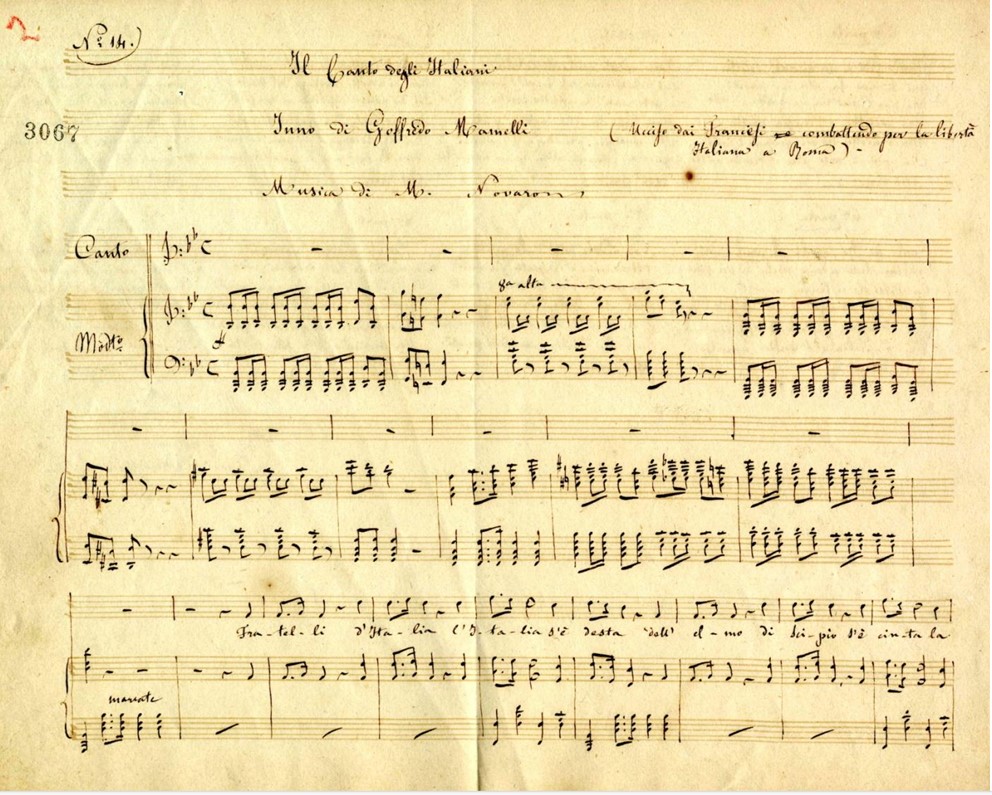 2
Nº 14.)
Il Canto degli Italiani
3067
Inno di Goffredo Mamelli (Ucciso dai Francesi combattendo per la libertà
Italiana a Roma) -
Musica di M. Novaro
Canto
8a alta
Modto
marcate
Fra-tel-li d'Ita-lia l'I-ta-lia s'è desta dell' el-mo di Sci-pio s'è cin-ta la